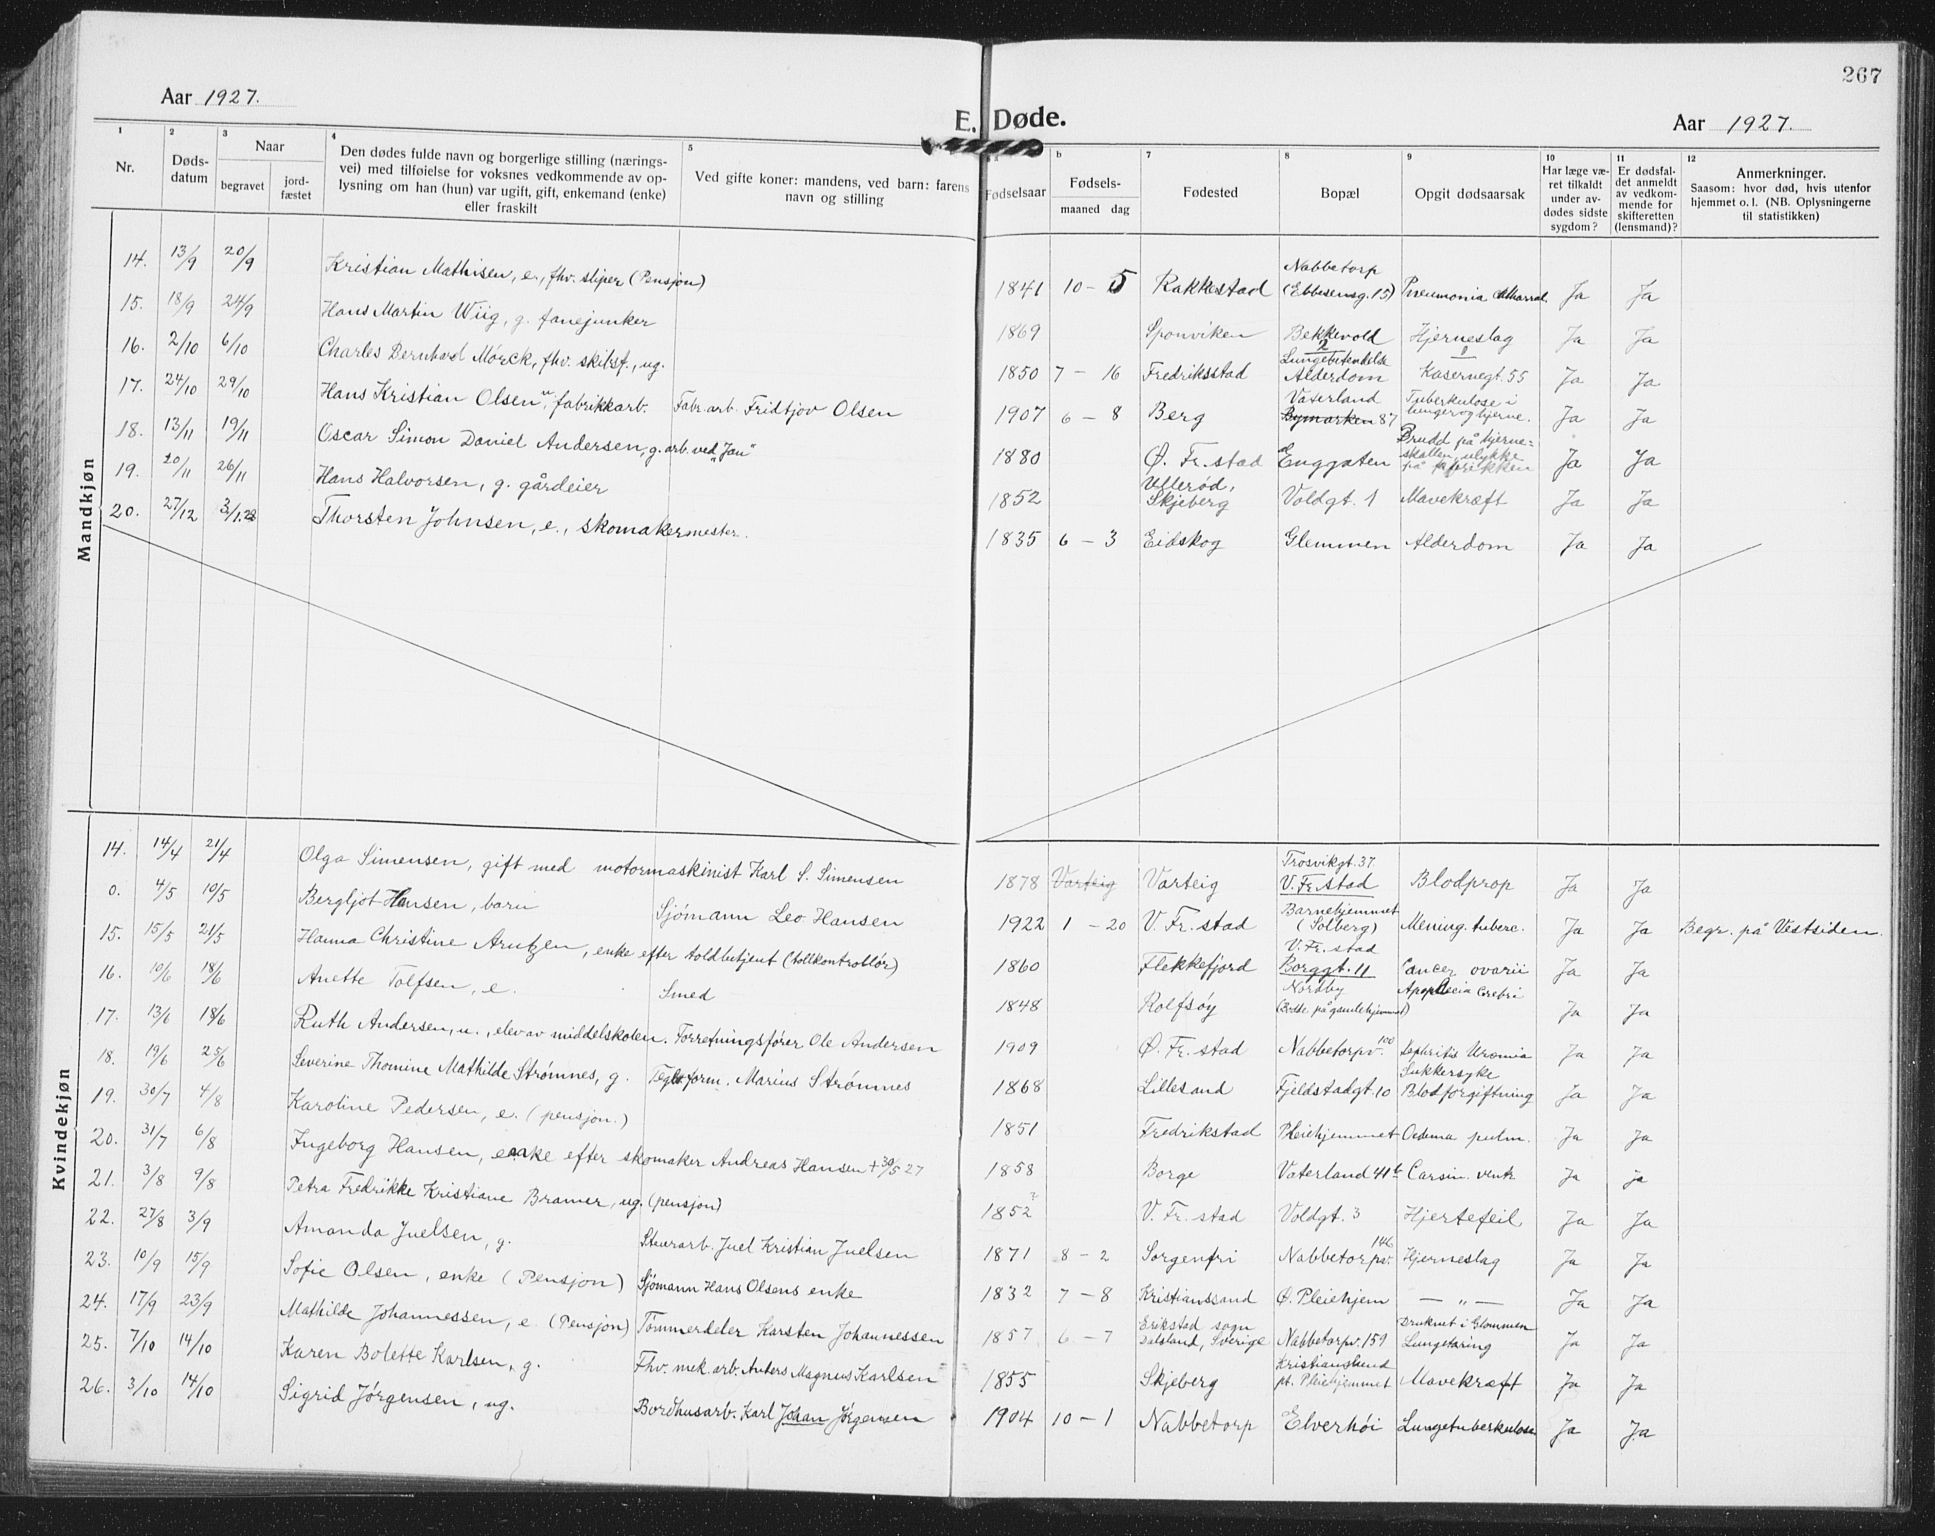 267
Aar 1927.
E. Døde.
Aar 1927.
1 2 3 4 5 b 7 8 9 10 11 12
Nr.
Døds-
datum
Naar
begravet
jord-
fæstet
Den dødes fulde navn og borgerlige stilling (nærings-
vei) med tilføielse for voksnes vedkommende av op-
lysning om han (hun) var ugift, gift, enkemand (enke)
eller fraskilt
Ved gifte koner: mandens, ved barn: farens
navn og stilling
Fødselsaar
Fødsels-
maaned dag
Fødested
Bopæl
Opgit dødsaarsak
Har læge væ-
ret tilkaldt
under av-
dødes sidste
sygdom?
Er dødsfal-
det anmeldt
av vedkom-
mende for
skifteretten
(lensmand)?
Anmerkninger.
Saasom: hvor død, hvis utenfor
hjemmet o. l. (NB. Oplysningerne
til statistikken)
Mandkjøn
14. 13/9 20/9 Kristian Mathisen, e., fhv. sliper (Pensjon) 1841 10 - 5 Rakkestad Nabbetorp (Ebbesensg. 15) Pneumonia Ja Ja
15. 18/9 24/9 Hans Martin Wiig, g. fanejunker 1869 Sponviken Bekkevold Hjerneslag Ja Ja
16. 2/10 6/10 Charles Bernhard Mörck, fhv. skibsf., ug. 1850 7 - 16 Fredriksstad Alderdom Kasernegt. 55 Ja Ja
17. 24/10 29/10 Hans Kristian Olsen, u. fabrikkarb. Fabr. arb. Fridtjov Olsen 1907 6 - 8 Berg Vaterland Bymarken 87 Tuberkulose i lunger og hjerne. Ja Ja
18. 13/11 19/11 Oscar Simon Daniel Andersen, g. arb. ved "Jau" 1880 Ø. Fr. stad Enggaten Brudd på hjerne- skallen, ulykke på fabrikken Ja Ja
19. 20/11 26/11 Hans Halvorsen, g. gårdeier 1852 Ullerød, Skjeberg Voldgt. 1 Mavekræft Ja Ja
20. 27/12 3/1.28 Thorsten Johnsen, e., skomakermester. 1835 6 - 3 Eidskog Glemmen Alderdom Ja Ja
Kvindekjøn
14. 14/4 21/4 Olga Simensen, gift med motormaskinist Karl S. Simensen 1878 Varteig Varteig Trosvikgt. 37 V. Fr. stad Blodprop Ja Ja
0. 4/5 10/5 Bergljot Hansen, barn Sjömann Leo Hansen 1922 1 - 20 V. Fr. stad Barnehjemmet (Solberg) V. Fr. stad Mening. tuberc. Ja Ja Begr. på Vestsiden.
15. 15/5 21/5 Hanna Christine Arntzen, enke efter toldbetjent (tollkontrollör) 1860 Flekkefjord Borggt. 11 Cancer ovarii Ja Ja
16. 10/6 18/6 Anette Tolfsen, e. Smed 1848 Rolfsøy Nordby (Bodde på gamlehjemmet) Apoplexia Cerebri Ja Ja
17. 13/6 18/6 Ruth Andersen, u., elev av middelskolen. Forretningsfører Ole Andersen 1909 Ø. Fr. stad Nabbetorpv. 100 Nephritis Uræmia Ja Ja
18. 19/6 25/6 Severine Thomine Mathilde Strømnes, g. Teglv. form. Marius Strømnes 1868 Lillesand Fjeldstadgt. 10 Sukkersyke Blodforgiftning Ja Ja
19. 30/7 4/8 Karoline Pedersen, e. (pensjon.) 1851 Fredrikstad Pleiehjemmet Oedema pulm. Ja Ja
20. 31/7 6/8 Ingeborg Hansen, enke efter skomaker Andreas Hansen + 30/5 27 1858 Borge Vaterland 41 b Carsin. ventr. Ja ja
21. 3/8 9/8 Petra Fredrikke Kristiane Bramer, ug. (pensjon) 1852 ? V. Fr. stad Voldgt. 3 Hjertefeil Ja Ja
22. 27/8 3/9 Amanda Juelsen, g. Stuerarb. Juel Kristian Juelsen 1871 8 - 2 Sorgenfri Nabbetorpv. 146 Hjerneslag Ja Ja
23. 10/9 15/9 Sofie Olsen, enke (Pensjon) Sjømann Hans Olsens enke 1832 7 - 8 Kristianssand Ø. Pleiehjem — " — Ja Ja
24. 17/9 23/9 Mathilde Johannessen, e. (Pensjon) Tømmerdeler Karsten Johannessen 1857 6 - 7 Erikstad sogn Dalsland, Sverige Nabbetorpv. 159 Druknet i Glommen Lungetæring Ja Ja
25. 7/10 14/10 Karen Bolette Karlsen, g. Fhv. mek. arb. Anders Magnus Karlsen 1855 Skjeberg Kristianslund pt. Pleiehjemmet Mavekræft Ja Ja
26. 3/10 14/10 Sigrid Jörgensen, ug. Bordhusarb. Karl Johan Jörgensen 1904 10 - 1 Nabbetorp Elverhöi Lungetuberkulose Ja Ja